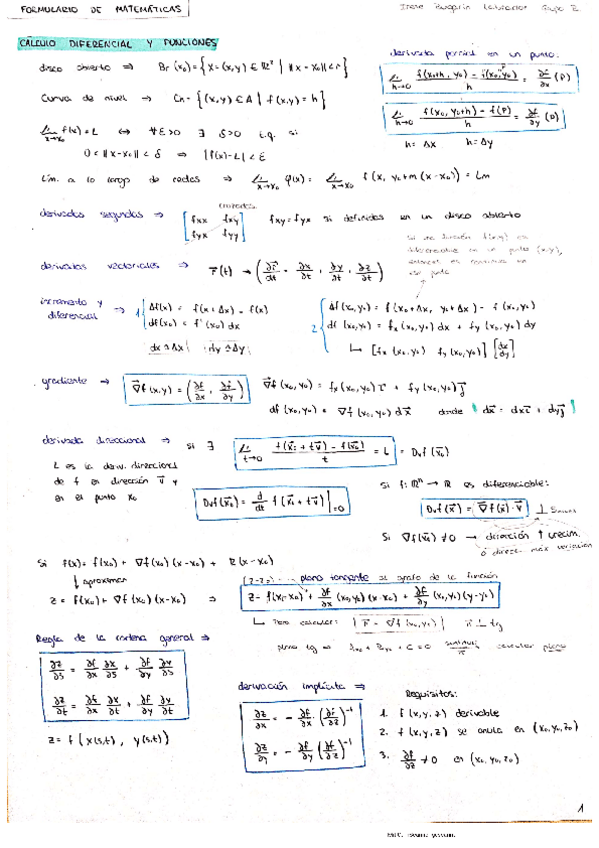 FORMULARIO DE MATEMÁTICAS
Irene Grupo 2
CÁLCULO DIFERENCIAL Y FUNCIONES
disco abierto ⇒ Br(x₀) = {x = (x,y) ∈ ℝ² | ||x - x₀|| < r}
Curva de nivel → Ch = {(x,y) ∈ A | f(x,y) = h}
Lím x→x₀ f(x) = L ⇔ ∀ε>0 ∃ δ>0 t.q. si
0 < ||x - x₀|| < δ ⇒ |f(x) - L| < ε
derivada parcial en un punto:
Lím h→0 (f(x₀+h, y₀) - f(x₀, y₀))/h = ∂f/∂x (P)
Lím h→0 (f(x₀, y₀+h) - f(P))/h = ∂f/∂y (P)
h = Δx h = Δy
Lím. a lo largo de rectas ⇒ Lím x→x₀ φ(x) = Lím x→x₀ f(x, y₀ + m(x - x₀)) = Lm
derivadas segundas ⇒ [fxx fxy / fyx fyy] fxy = fyx si definidas en un disco abierto
si una función f(x,y) es
diferenciable en un punto (x,y),
entonces es continua en
ese punto
derivadas vectoriales ⇒ r(t) →
incremento y diferencial → 1 { Δf(x) = f(x+Δx) - f(x)
df(x₀) = f'(x₀) dx
dx ≃ Δx dy ≃ Δy
2 { Δf(x₀,y₀) = f(x₀+Δx, y₀+Δy) - f(x₀,y₀)
df(x₀,y₀) = fx(x₀,y₀) dx + fy(x₀,y₀) dy
↳ [fx(x₀,y₀) fy(x₀,y₀)] [dx/dy]
gradiente → ∇f(x,y) = (∂f/∂x, ∂f/∂y) ∇f(x₀,y₀) = fx(x₀,y₀) i + fy(x₀,y₀) j
df(x₀,y₀) = ∇f(x₀,y₀) dx donde dx = dx i + dy j
derivada direccional ⇒ si ∃ Lím t→0 (f(x₀ + tv) - f(x₀))/t = L = Dvf(x₀)
L es la deriv. direccional
de f en dirección v y
en el punto x₀
Dvf(x₀) = d/dt f(x₀ + tv) | =0
si f: ℝⁿ → ℝ es diferenciable:
Dvf(x) = ∇f(x)·v
Si ∇f(x₀) ≠ 0 → dirección ↑ crecim.
ó direcc. más variación
Si f(x) = f(x₀) + ∇f(x₀)(x-x₀) + R(x-x₀)
↓ aproximar
z = f(x₀) + ∇f(x₀)(x-x₀) ⇒
plano tangente al grafo de la función
z - f(x₁-x₀) + ∂f/∂x (x₀,y₀)(x-x₀) + ∂f/∂y (x₀,y₀)(y-y₀)
↳ Para calcular:
calcular plano
Regla de la cadena general ⇒
∂z/∂s = ∂f/∂x ∂x/∂s + ∂f/∂y ∂y/∂s
∂z/∂t = ∂f/∂x ∂x/∂t + ∂f/∂y ∂y/∂t
z = f(x(s,t), y(s,t))
derivación implícita ⇒
∂z/∂x = - ∂f/∂x (∂f/∂z)⁻¹
∂z/∂y = - ∂f/∂y (∂f/∂z)⁻¹
Requisitos:
1. f(x,y,z) derivable
2. f(x,y,z) se anula en (x₀,y₀,z₀)
3. ∂f/∂z ≠ 0 en (x₀,y₀,z₀)
1